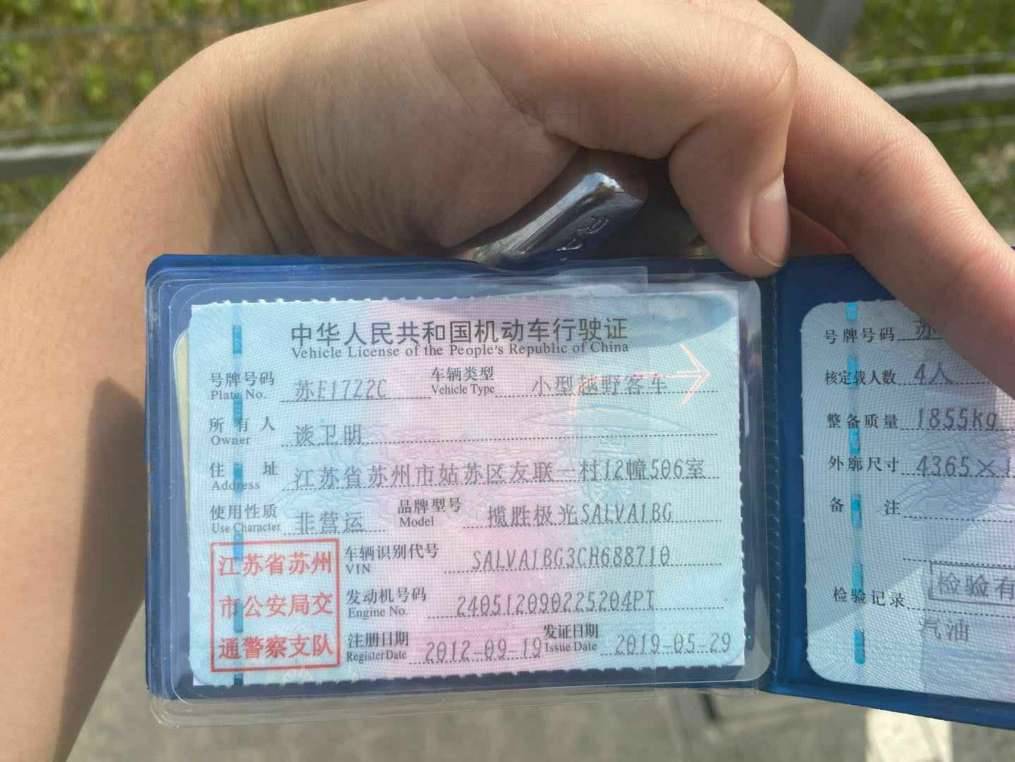 中华人民共和国机动车行驶证
Vehicle License of the People's Republic of China
号牌号码 苏E17Z2C 车辆类型 小型越野客车
Plate No. Vehicle Type
所有人 谈卫明
Owner
住址 江苏省苏州市姑苏区友联一村12幢506室
Address
使用性质 非营运 品牌型号 揽胜极光SALVA1BG
Use Character Model
江苏省苏州
市公安局交
通警察支队
车辆识别代号 SALVA1BG3CH688710
VIN
发动机号码 240512090225204PT
Engine No.
注册日期 2012-09-19 发证日期 2019-05-29
Register Date Issue Date
号牌号码 苏
核定载人数 4人
整备质量 1855Kg
外廓尺寸 4365×1
备注
检验记录 检验有
汽油